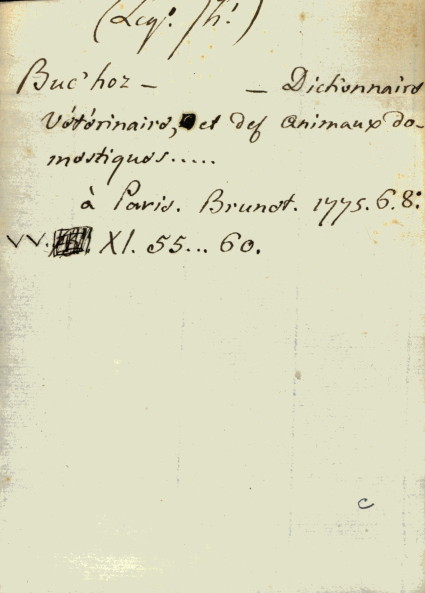 (Leg. Th.)
Buc'hoz — — Dictionnaire
vétérinaire, et des animaux do-
mestiques.....
à Paris. Brunet. 1775. 6. 8:
VV. XI. 55... 60.
c